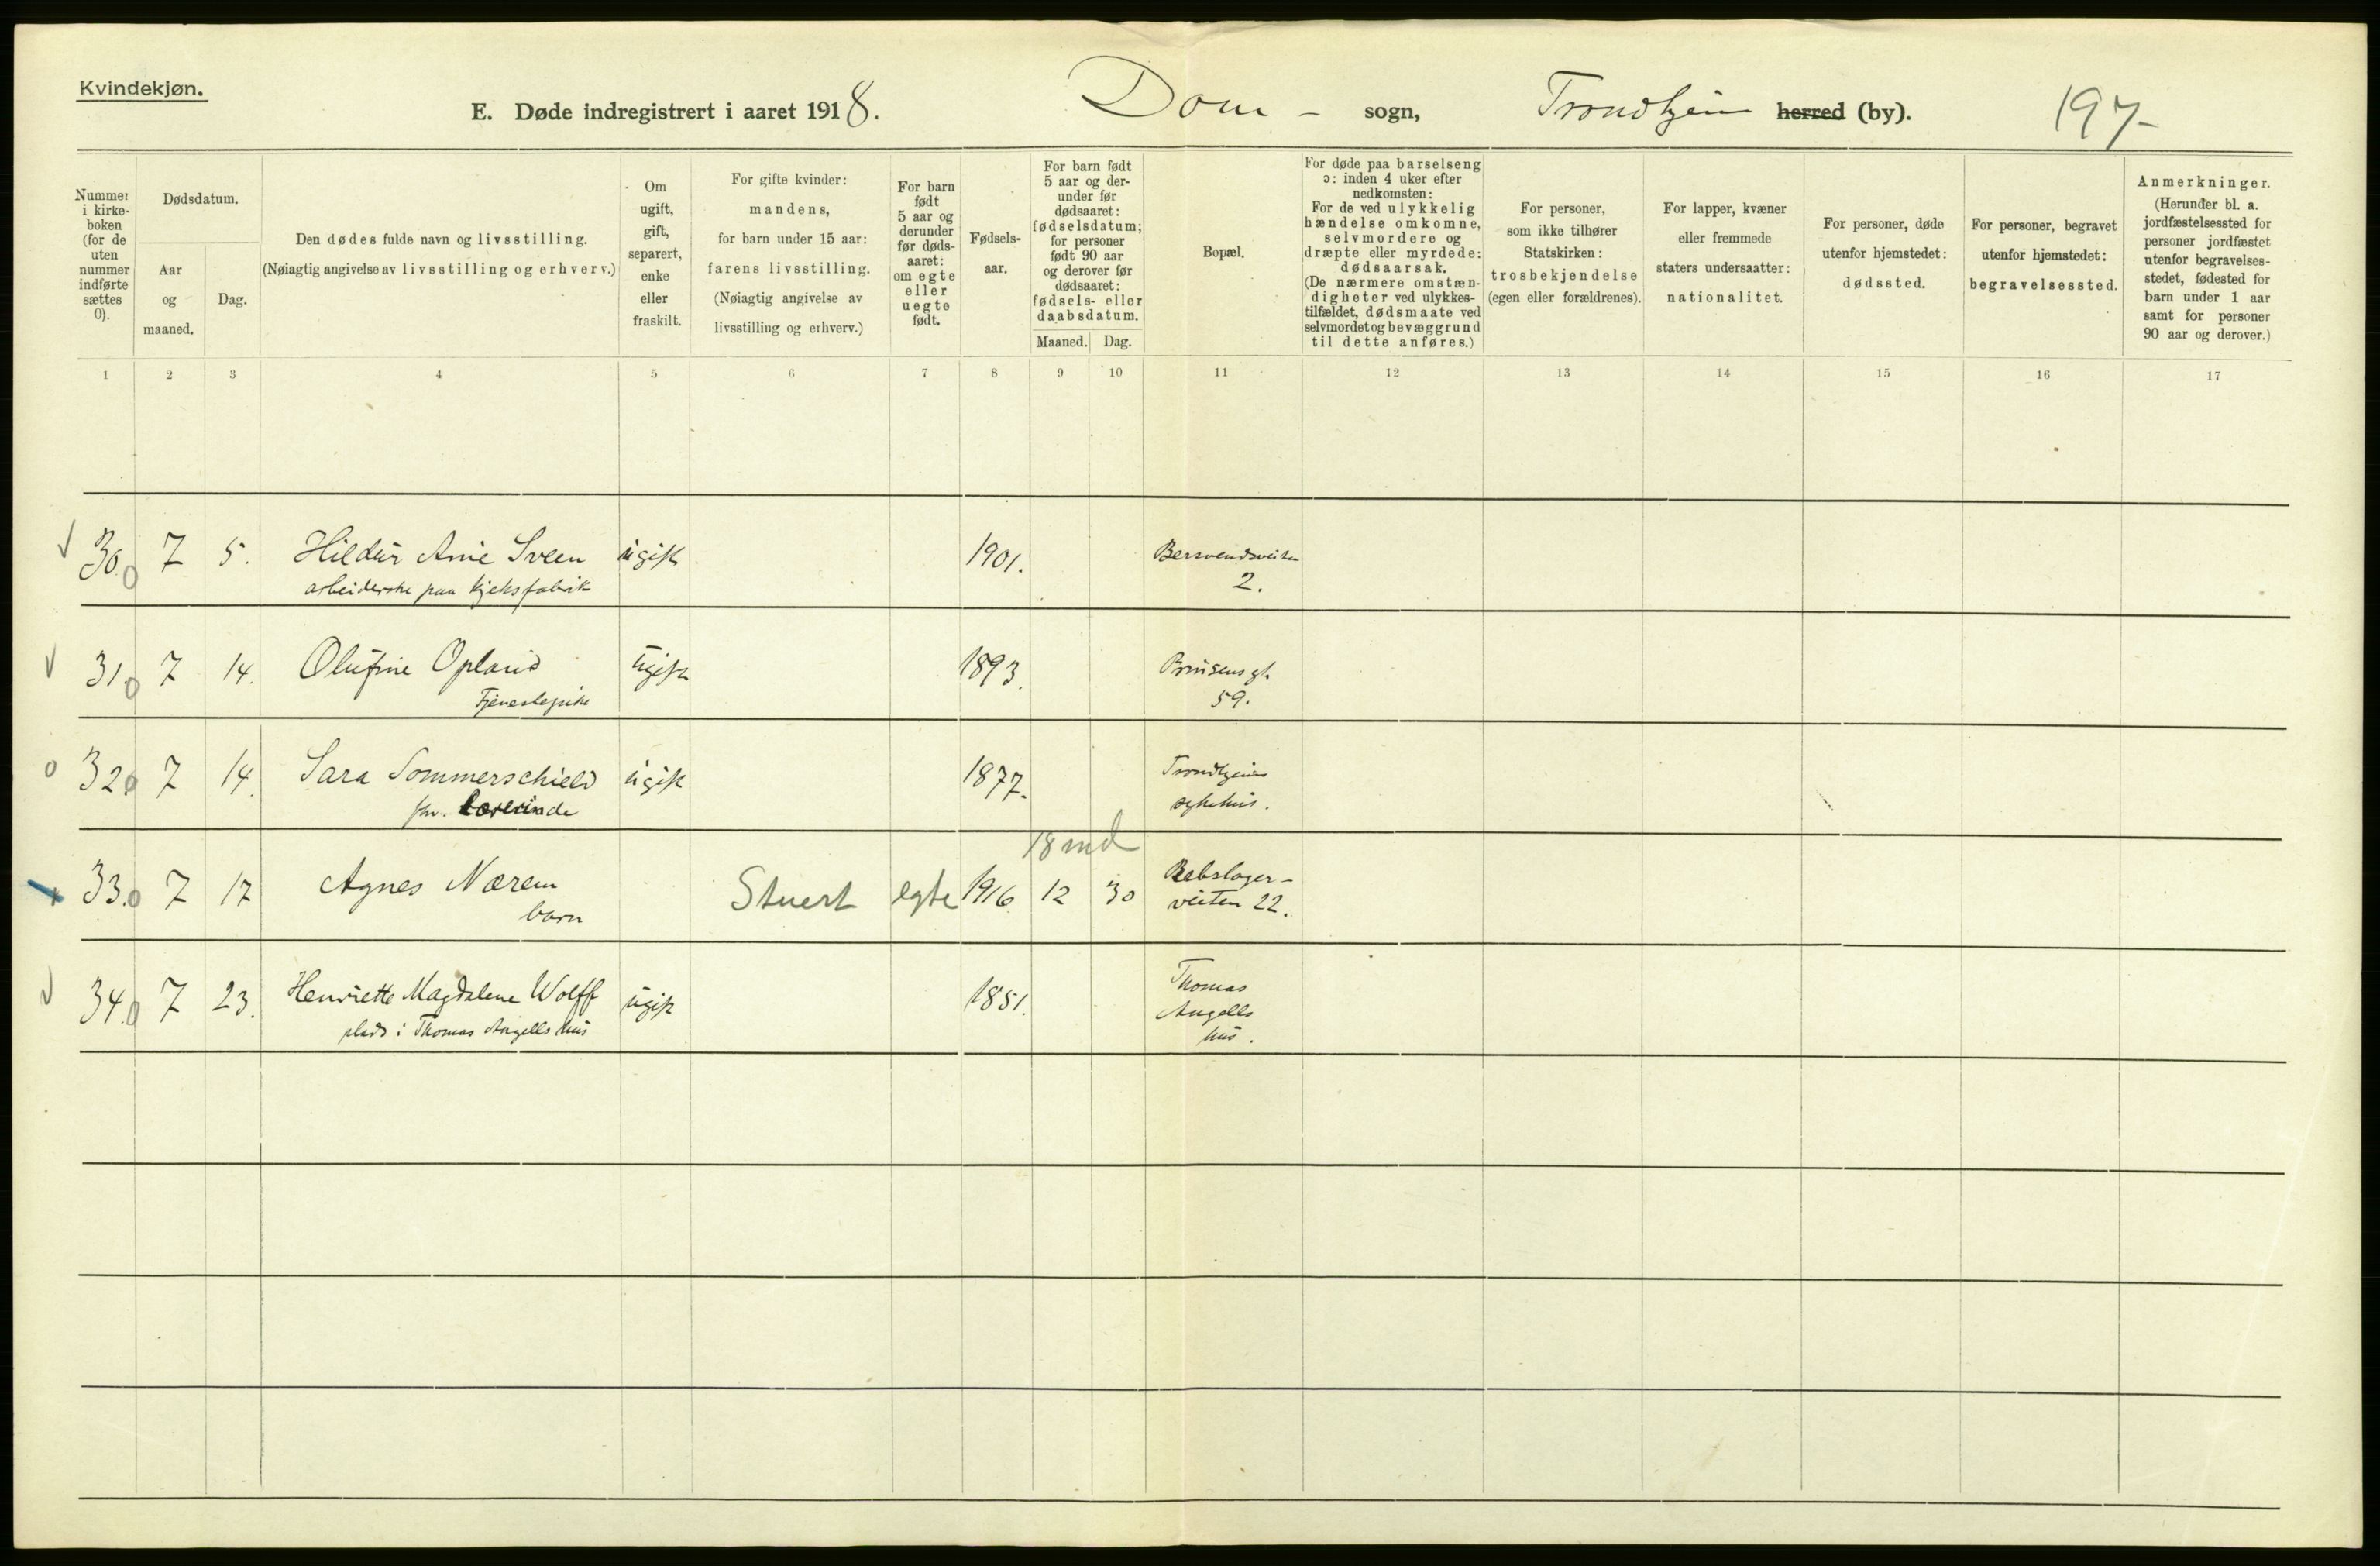 Kvindekjøn.
E. Døde indregistrert i aaret 1918.
Dom - sogn,
Trondhjem herred (by).
197-
Nummer
i kirke-
boken
(for de
uten
nummer
indførte
sættes
0).
Dødsdatum.
Aar
og
maaned.
Dag.
Den dødes fulde navn og livsstilling.
(Nøiagtig angivelse av livsstilling og erhverv.)
Om
ugift,
gift,
separert,
enke
eller
fraskilt.
For gifte kvinder:
mandens,
for barn under 15 aar:
farens livsstilling.
(Nøiagtig angivelse av
livsstilling og erhverv.)
For barn
født
5 aar og
derunder
før døds-
aaret:
om egte
eller
uegte
født.
Fødsels-
aar.
For barn født
5 aar og der-
under før
dødsaaret:
fødselsdatum;
for personer
født 90 aar
og derover før
dødsaaret:
fødsels- eller
daabsdatum.
Maaned. Dag.
Bopæl.
For døde paa barselseng
ɔ: inden 4 uker efter
nedkomsten:
For de ved ulykkelig
hændelse omkomne,
selvmordere og
dræpte eller myrdede:
dødsaarsak.
(De nærmere omstæn-
digheter ved ulykkes-
tilfældet, dødsmaate ved
selvmordet og bevæggrund
til dette anføres.)
For personer,
som ikke tilhører
Statskirken:
trosbekjendelse
(egen eller forældrenes).
For lapper, kvæner
eller fremmede
staters undersaatter:
nationalitet.
For personer, døde
utenfor hjemstedet:
dødssted.
For personer, begravet
utenfor hjemstedet:
begravelsessted.
Anmerkninger.
(Herunder bl. a.
jordfæstelsessted for
personer jordfæstet
utenfor begravelses-
stedet, fødested for
barn under 1 aar
samt for personer
90 aar og derover.)
1 2 3 4 5 6 7 8 9 10 11 12 13 14 15 16 17
30. 0 7 5. Hildur Anie Sveen ugift 1901. Bersvendsveiten
arbeiderske paa kjeksfabrik 2.
31. 0 7 14. Olufine Opland ugift 1893. Prinsens gt.
Tjenestepike 59.
32 0 7 14. Sara Sommerschield ugift 1877. Trondhjems
fhv. lærerinde sykehus.
18 md
33. 0 7 17 Agnes Nærem Stuert egte 1916 12 30 Rebslager-
barn veiten 22.
34. 0 7 23. Henriette Magdalene Wolff ugift 1851. Thomas
plads i Thomas Angells hus Angells
hus.